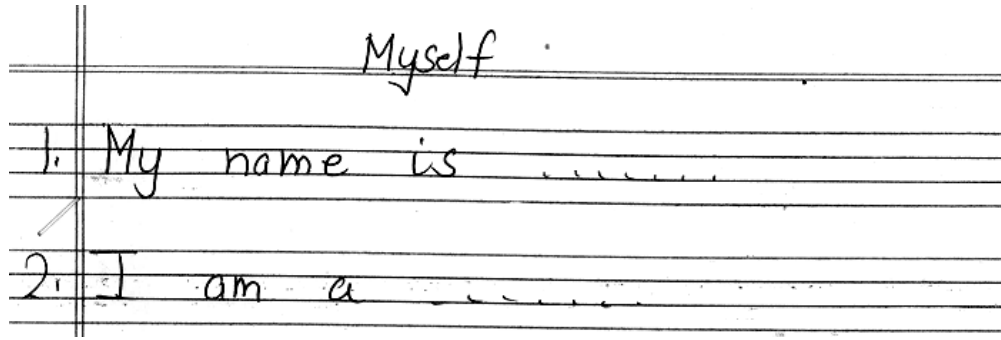 Myself
1. My name is .......
2. I am a .......